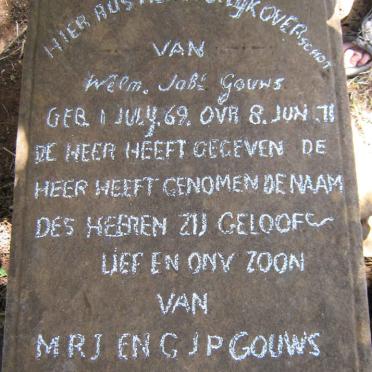 HIER RUST HET STOFFELIJK OVERSCHOT
VAN
Welm. Jabs Gouws
GEB 1 JULY. 69. OVR 8. JUN. 71
DE HEER HEEFT GEGEVEN DE
HEER HEEFT GENOMEN DE NAAM
DES HEEREN ZIJ GELOOFD
LIEF EN ONV ZOON
VAN
M R J EN G J P GOUWS